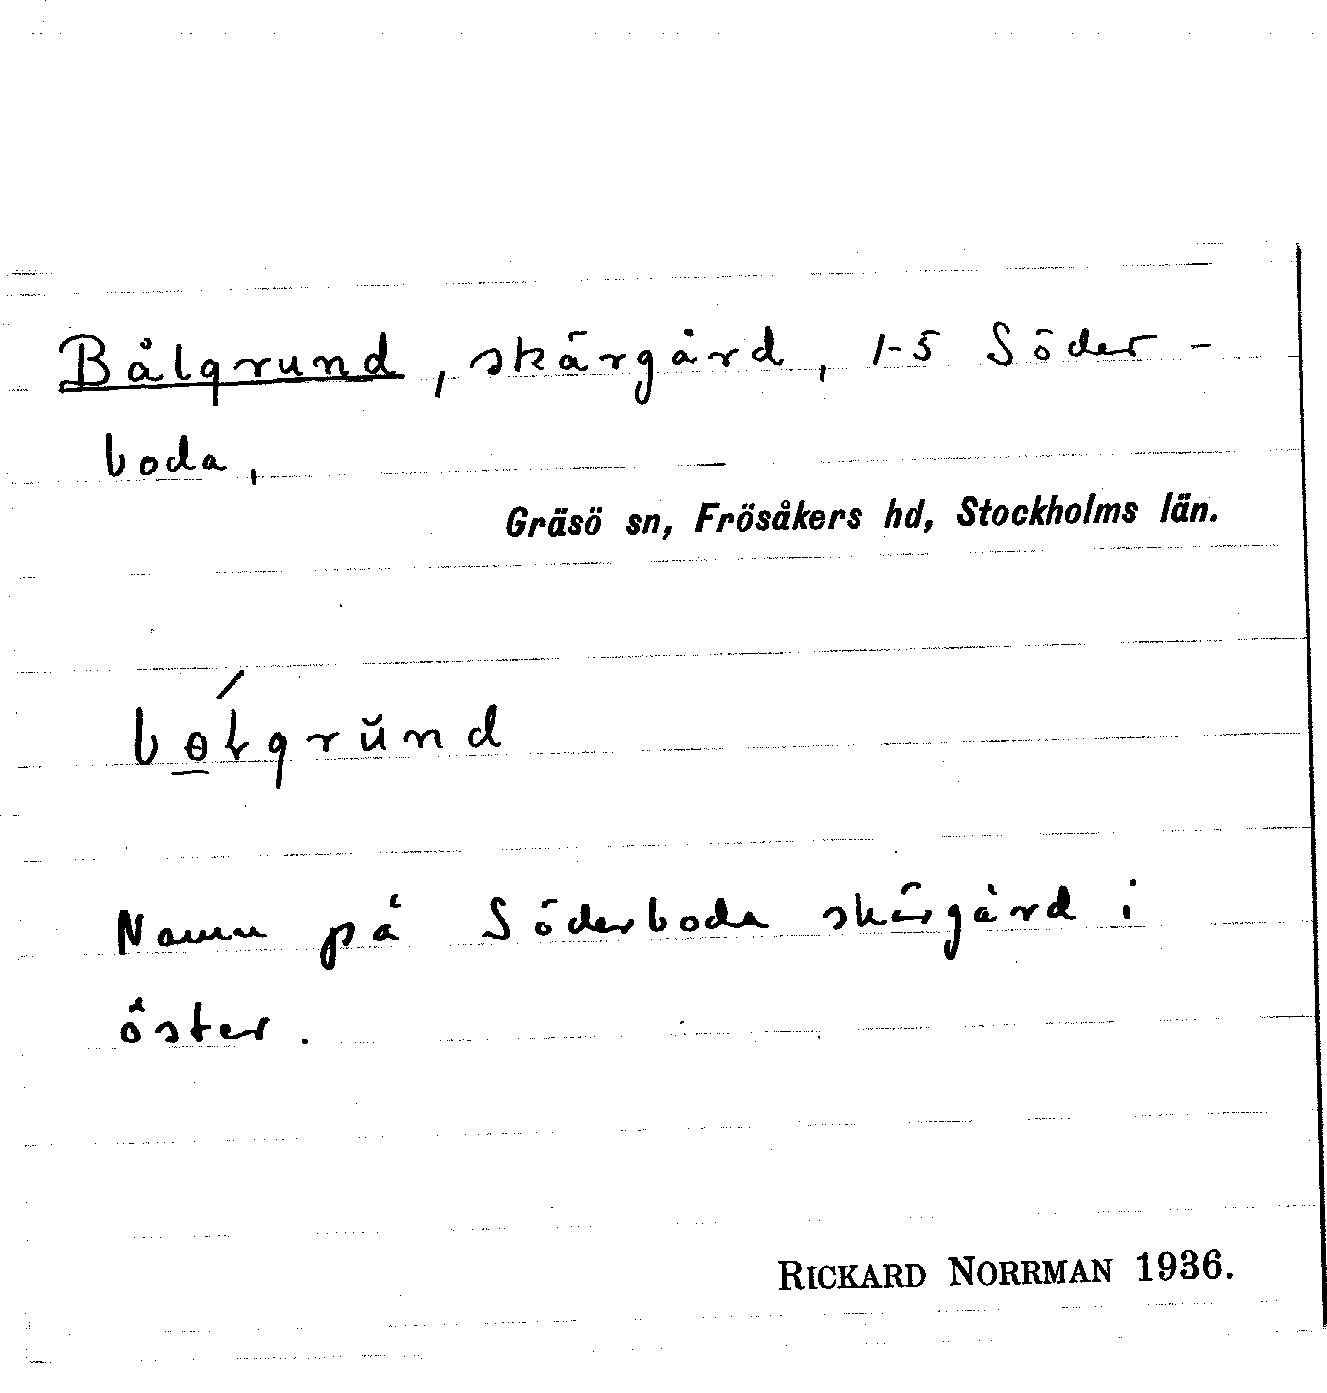 Bålgrund, skärgård, 1-5 Söder-
boda,
Gräsö sn, Frösåkers hd, Stockholms län.
Namn på Söderboda skärgård i
öster.
RICKARD NORRMAN 1936.